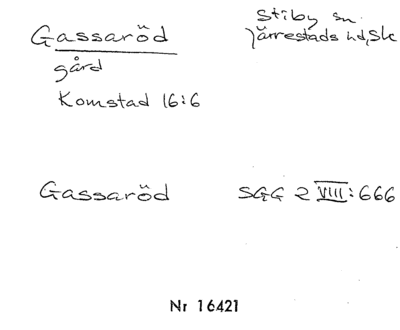 Gassaröd
Stiby sn
Järrestads hd, Sk
gård
Komstad 16:6
Gassaröd
SGG 2 VIII:666
Nr 16421